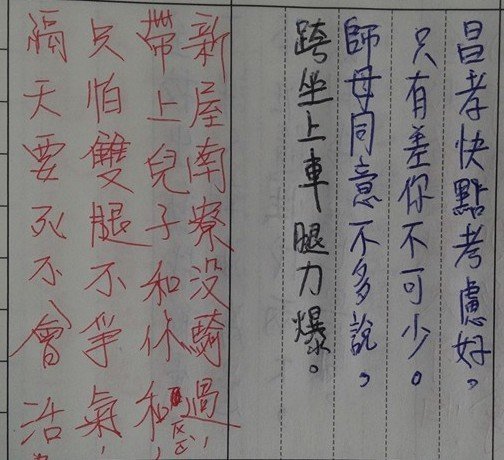 昌孝快點考慮好。
只有差你不可少。
師母同意不多說。
跨坐上車腿力爆。
新屋南寮没騎過,
帶上兒子和休和,
只怕雙腿不爭氣,
隔天要死不會活